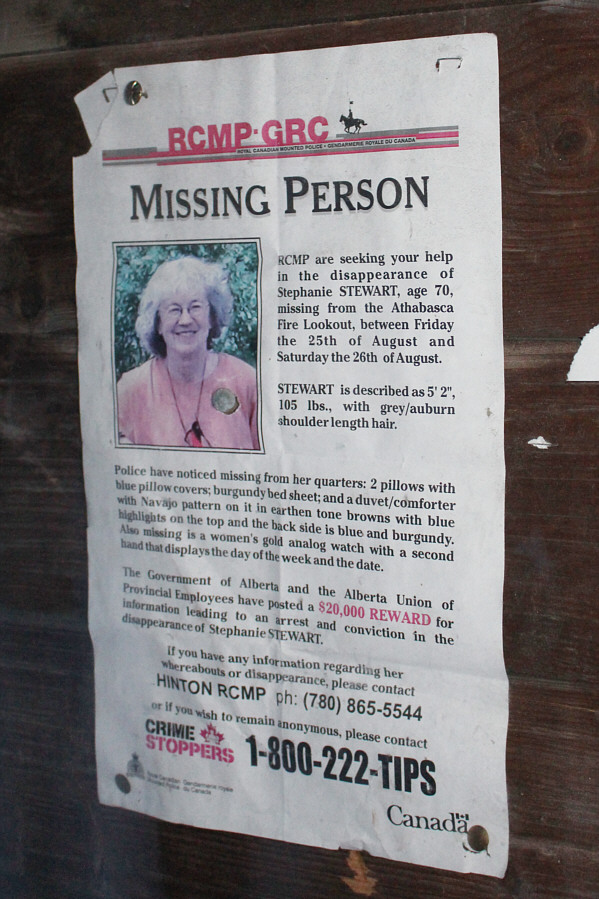 RCMP·GRC
ROYAL CANADIAN MOUNTED POLICE • GENDARMERIE ROYALE DU CANADA
MISSING PERSON
RCMP are seeking your help
in the disappearance of
Stephanie STEWART, age 70,
missing from the Athabasca
Fire Lookout, between Friday
the 25th of August and
Saturday the 26th of August.
STEWART is described as 5' 2",
105 lbs., with grey/auburn
shoulder length hair.
Police have noticed missing from her quarters: 2 pillows with
blue pillow covers; burgundy bed sheet; and a duvet/comforter
with Navajo pattern on it in earthen tone browns with blue
highlights on the top and the back side is blue and burgundy.
Also missing is a women's gold analog watch with a second
hand that displays the day of the week and the date.
The Government of Alberta and the Alberta Union of
Provincial Employees have posted a $20,000 REWARD for
information leading to an arrest and conviction in the
disappearance of Stephanie STEWART.
If you have any information regarding her
whereabouts or disappearance, please contact
HINTON RCMP ph: (780) 865-5544
or if you wish to remain anonymous, please contact
CRIME
STOPPERS
1-800-222-TIPS
Royal Canadian Gendarmerie royale
Mounted Police du Canada
Canada